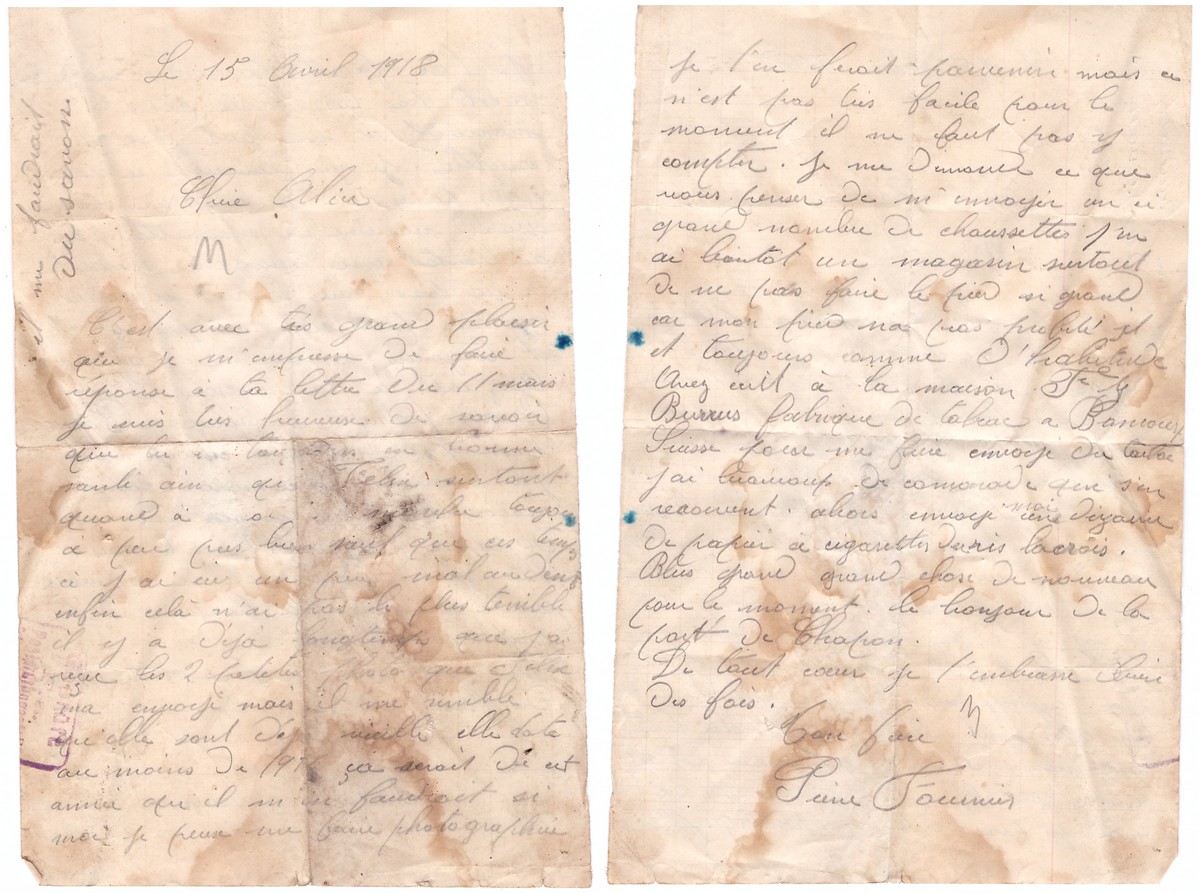 Le 15 Avril 1918
il me faudrait
du savon
Chère Alice
C'est avec très grand plaisir
que je m'empresse de faire
réponse à ta lettre du 11 mars
je suis très heureux de savoir
que tu es toujours en bonne
santé ainsi que Félix surtout
quand à moi toujours
à peu près bien sauf que ces temps
ci j'ai eu un peu mal au dents
enfin celà n'ai pas le plus terrible
il y a déjà longtemps que j'ai
reçu les 2 petites photo que
ma envoyé mais il me semble
qu'elle sont déjà vieille elle date
au moins de ça serait de cet
année qu'il m'en faudrait si
moi je peux me faire photographier
je t'en ferait parvenir mais ce
n'est pas très facile pour le
moment il ne faut pas y
compter. Je me demande ce que
vous penser de m'envoyer un si
grand nombre de chaussettes j'en
ai bientôt un magasin surtout
de ne pas faire le pied si grand
car mon pied na pas profité il
et toujours comme d'habitude
Avez écrit à la maison
Burrus fabrique de tabac a
Suisse pour me faire envoyé du tabac
j'ai beaucoup de camarade qui s'en
recoivent. alors envoyé moi une dizaine
de papier à cigarettes lacroix.
Plus grand grand chose de nouveau
pour le moment. le bonjour de la
part de Chapon.
De tout cœur je t'embrasse
des fois.
Ton frère
Pierre Fournier